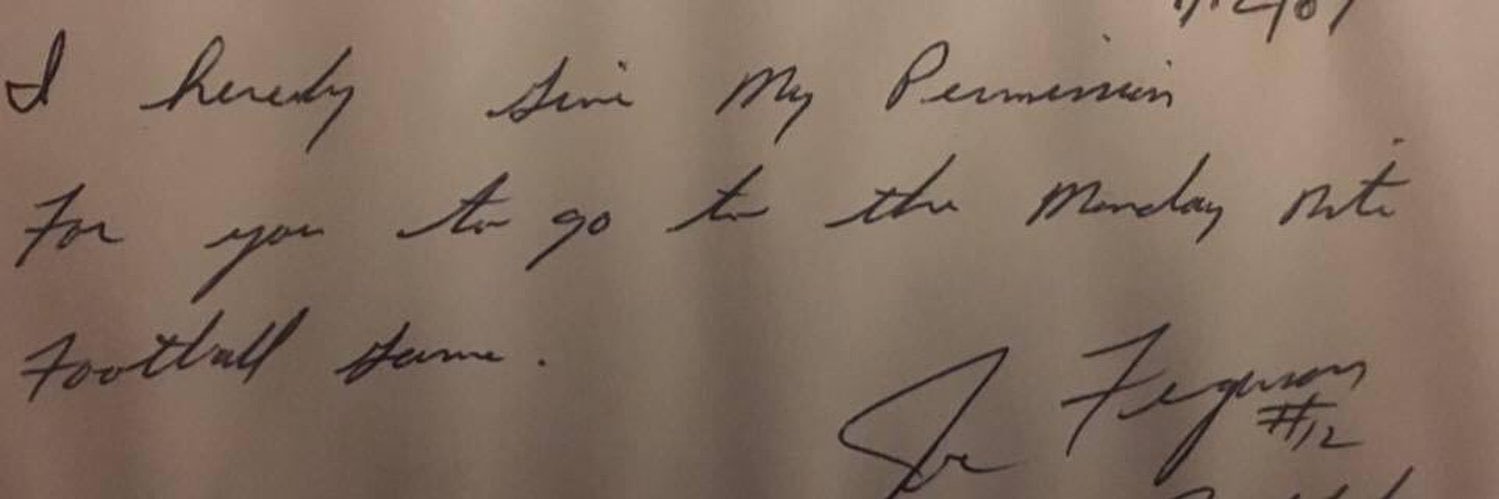 I hereby give my Permission
For you to go to the Monday nite
Football game.
Joe Ferguson
#12